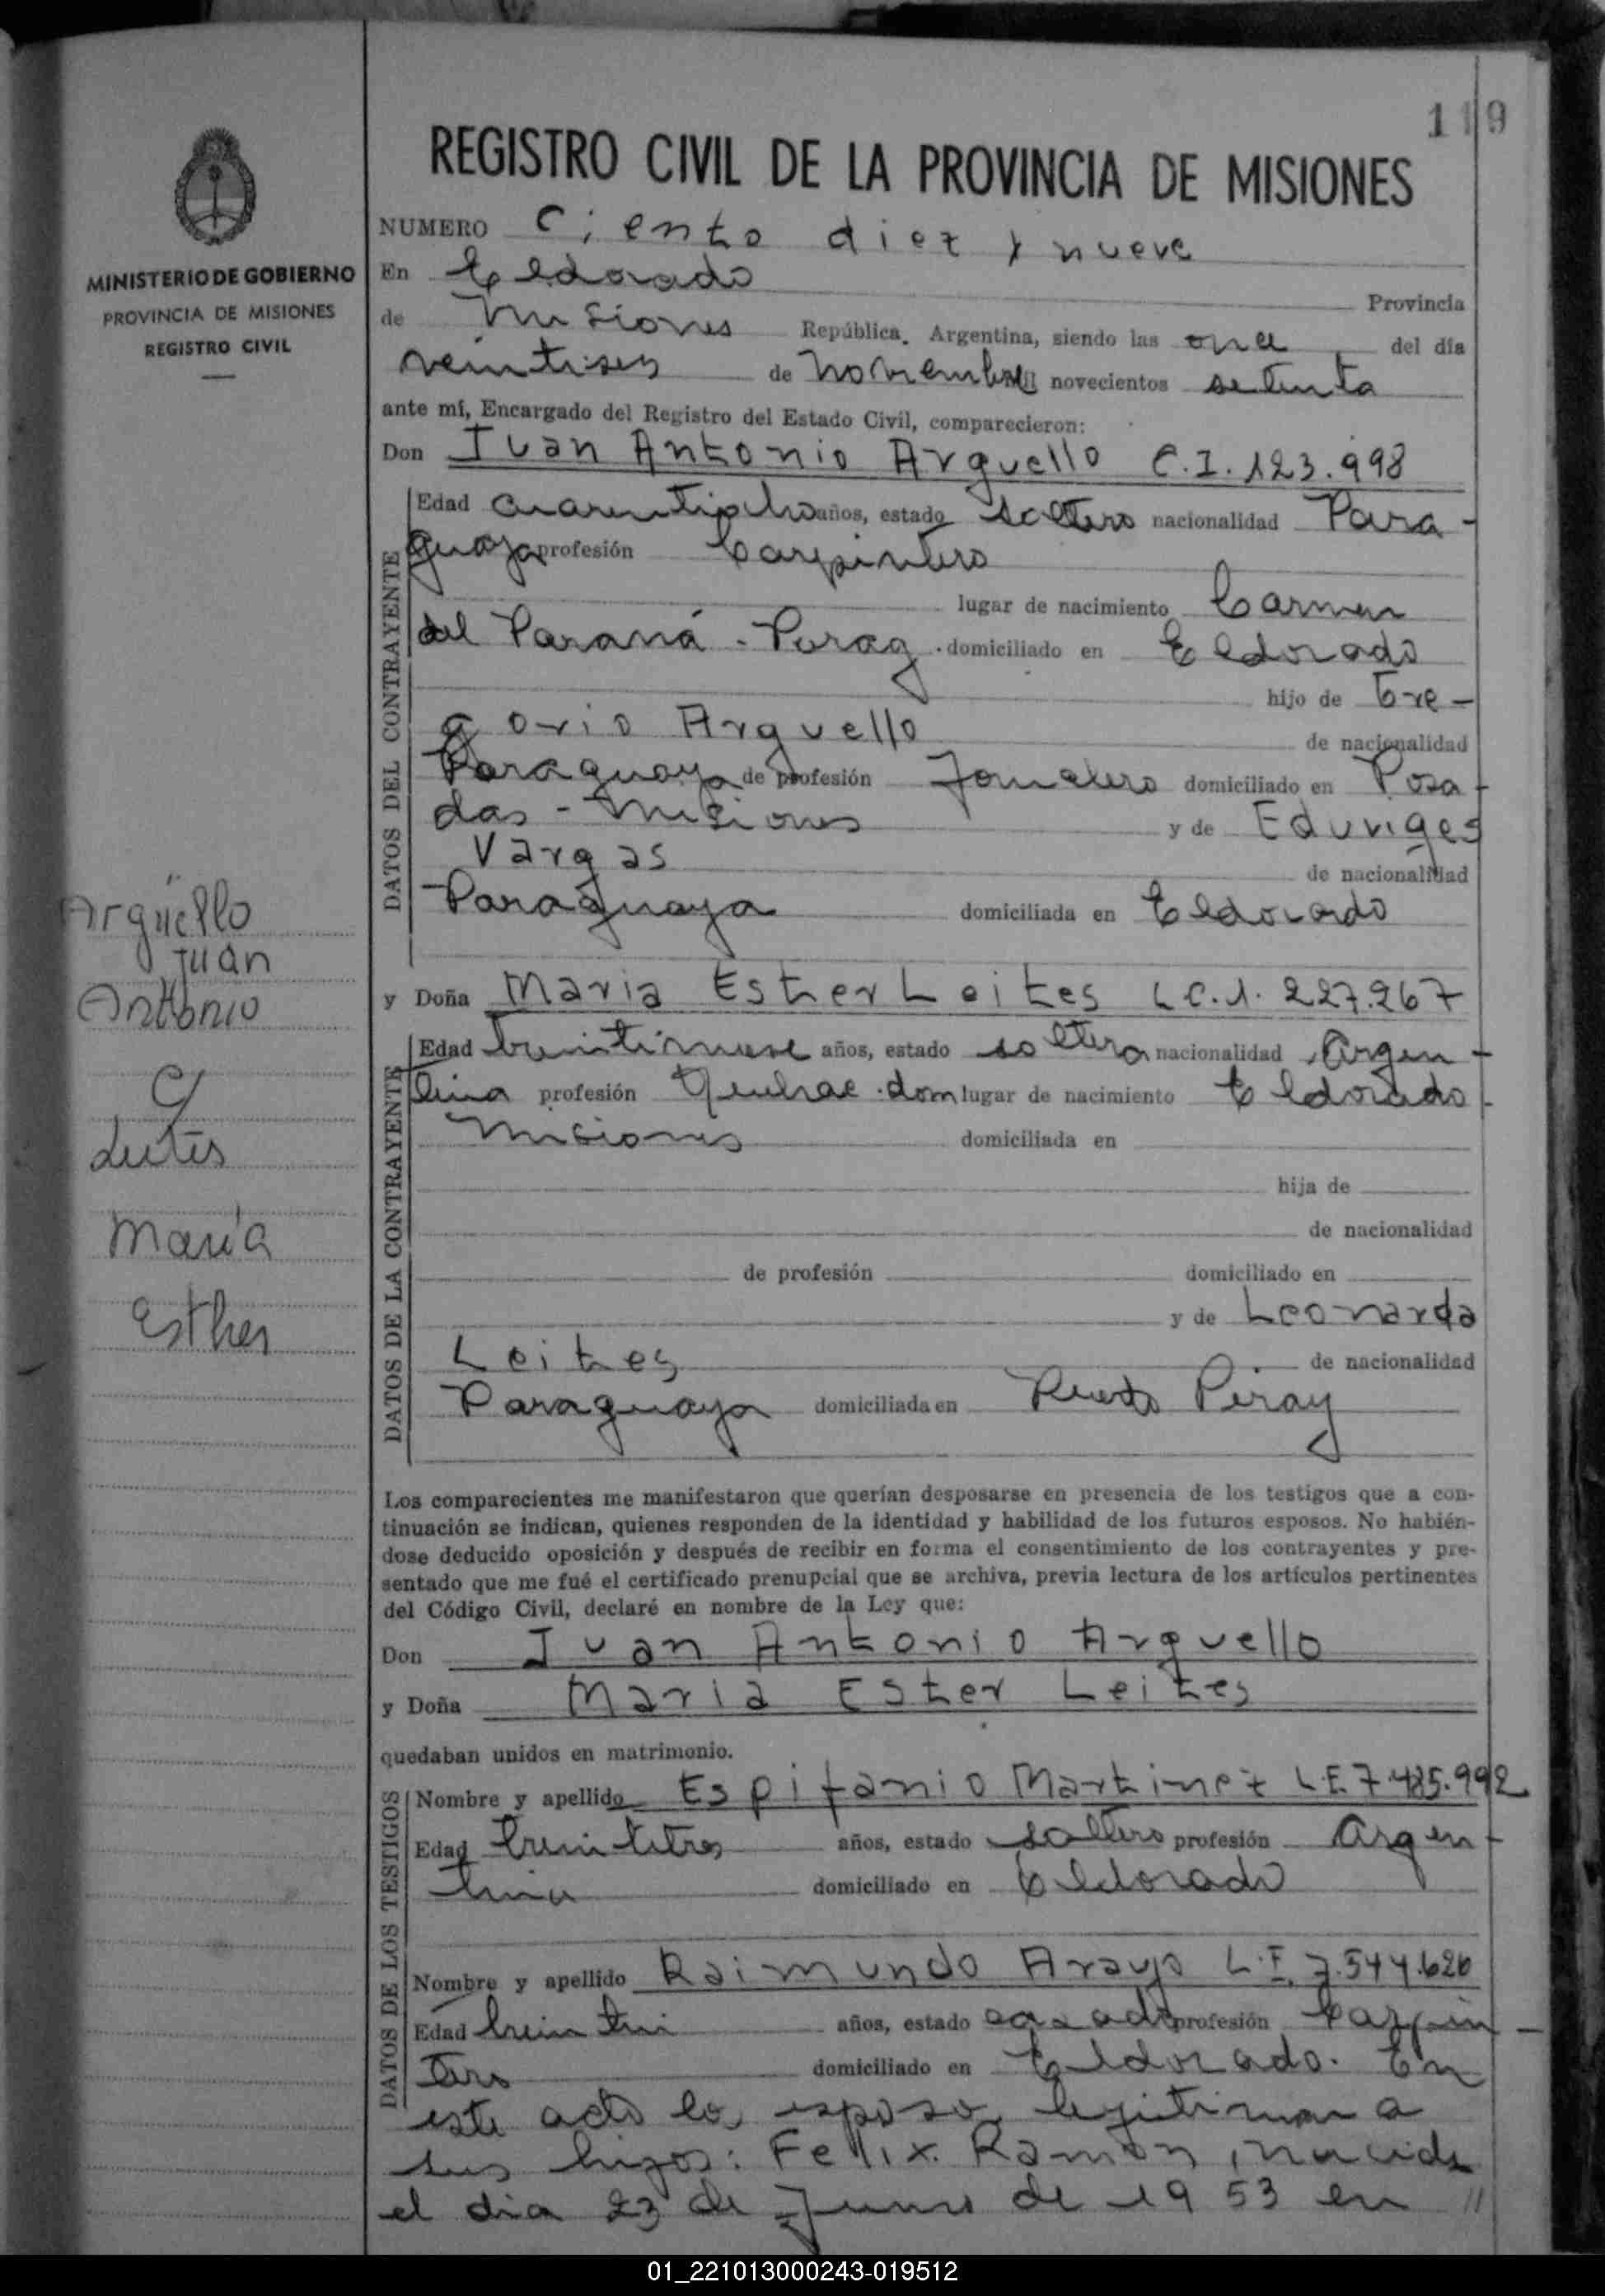 119
REGISTRO CIVIL DE LA PROVINCIA DE MISIONES
MINISTERIO DE GOBIERNO
PROVINCIA DE MISIONES
REGISTRO CIVIL
Arguello
Juan
Antonio
C/
Leites
María
Esther
NUMERO Ciento diez y nueve
En Eldorado Provincia
de Misiones República Argentina, siendo las once del día
veintiseis de noviembre mil novecientos setenta
ante mí, Encargado del Registro del Estado Civil, comparecieron:
Don Juan Antonio Arguello C.I. 123.998
DATOS DEL CONTRAYENTE
Edad cuarentiocho años, estado soltero nacionalidad Para-
guaya profesión Carpintero
lugar de nacimiento Carmen
del Paraná - Parag. domiciliado en Eldorado
hijo de Gre-
gorio Arguello de nacionalidad
Paraguaya de profesión Jornalero domiciliado en Posa-
das - Misiones y de Eduviges
Vargas de nacionalidad
Paraguaya domiciliada en Eldorado
y Doña Maria Esther Leites C.I. 227.267
DATOS DE LA CONTRAYENTE
Edad treintinueve años, estado soltera nacionalidad Argen-
tina profesión Quehac. dom lugar de nacimiento Eldorado
Misiones domiciliada en
hija de
de nacionalidad
de profesión domiciliado en
y de Leonarda
Leites de nacionalidad
Paraguaya domiciliada en Puerto Piray
Los comparecientes me manifestaron que querían desposarse en presencia de los testigos que a con-
tinuación se indican, quienes responden de la identidad y habilidad de los futuros esposos. No habién-
dose deducido oposición y después de recibir en forma el consentimiento de los contrayentes y pre-
sentado que me fué el certificado prenupcial que se archiva, previa lectura de los artículos pertinentes
del Código Civil, declaré en nombre de la Ley que:
Don Juan Antonio Arguello
y Doña Maria Ester Leites
quedaban unidos en matrimonio.
DATOS DE LOS TESTIGOS
Nombre y apellido Espifanio Martinez L.E. 7.485.992
Edad treintitres años, estado soltero profesión Argen-
tina domiciliado en Eldorado
Nombre y apellido Raimundo Araujo L.E. 7.544.620
Edad años, estado casado profesión Carpin-
tero domiciliado en Eldorado. En
este acto los esposos legitiman a
sus hijos: Fellix Ramón, nacido
el dia 23 de Junio de 1953 en //
01_221013000243-019512